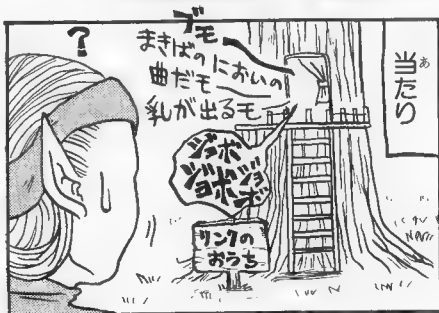 当たり
あ
ブモー
まきばの
においの
曲だモー
乳が出るモー
ジョボ
ジョボジョ
ボ
リンクの
おうち
?